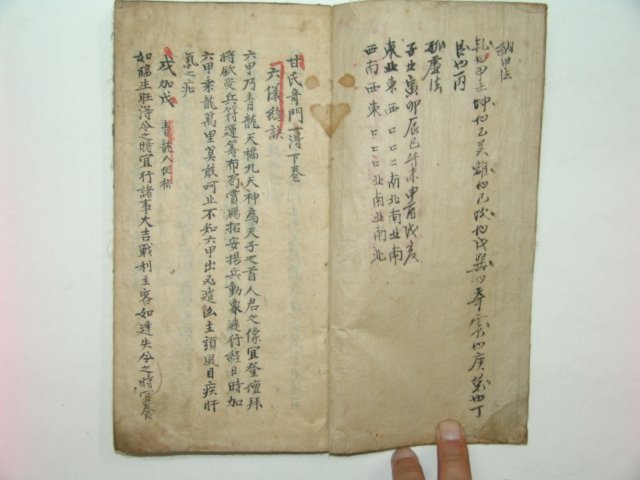 納甲法
乾納甲壬坤納乙癸離納己坎納戊震納庚
艮納丙
孤虛法
子丑寅卯辰巳午未申酉戌亥
東北東西口口口南北南北南
西南西東口口口北南北南北
甘氏奇門一得下卷
六儀總訣
六甲乃青龍天福九天神為天子之首人君之像宜登壇拜
將感受兵符運籌布局賞賜招安揚兵動衆遠行經日時加
六甲乘龍萬里莫敢呵止不知六甲出死遁法主頭風目疾肝
氣之症
戊加戊 青龍入地格
如臨生旺得令之時宜行諸事大吉戰利主客如逢失令之時宜養